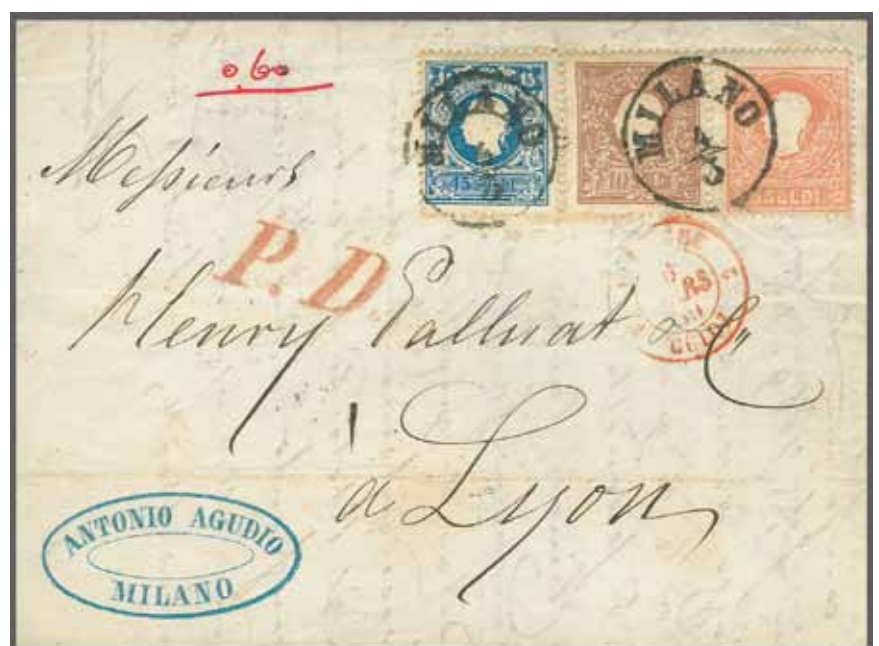 0.60
MILANO
MILANO
15 SOLDI
10
5 SOLDI
Messieurs
P.D.
RS
Henry Palluat & C
à Lyon
ANTONIO AGUDIO
MILANO